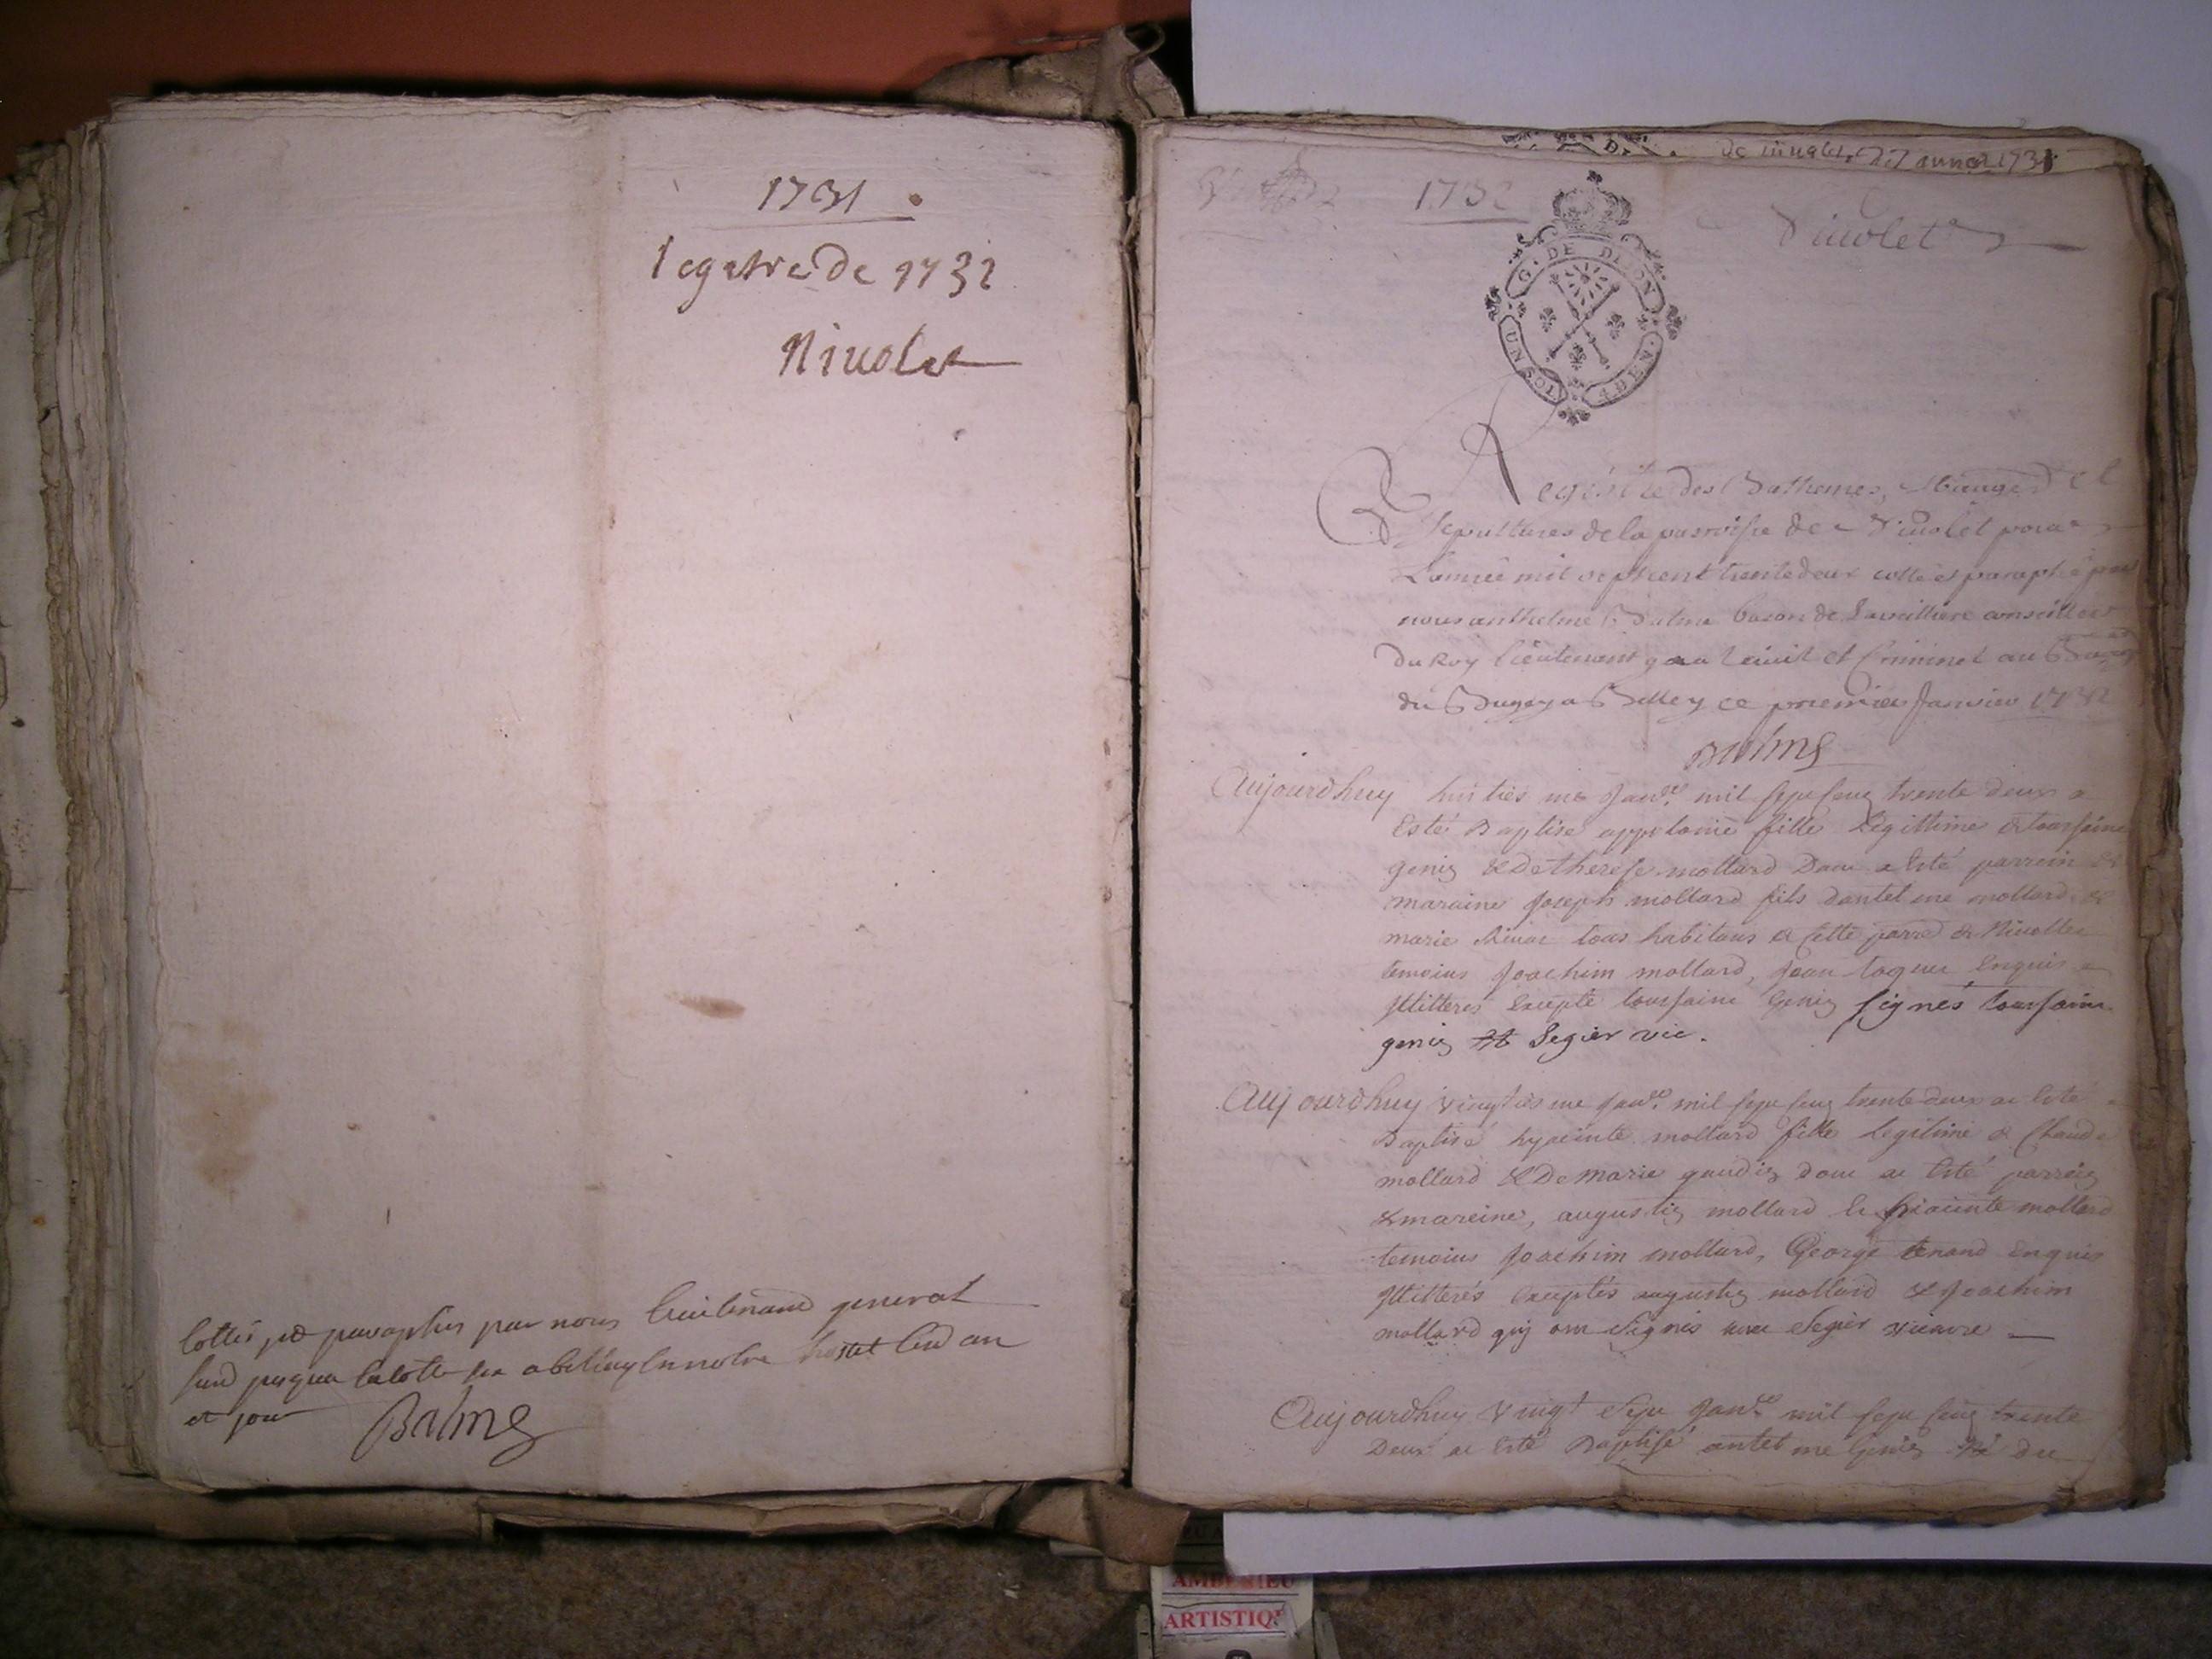 1731
Regitre de 1731
Nivolet
Cottés et paraphés par nous lieutenand general
jusqua la cotte six a belley en notre hostel lesd an
et jour Balme
de nivolet
1732
Nivolet
G. DE DIJON
UN SOL
Registre des Bathemes, Mariages et
Sepultures de la parroisse de Nivolet pour
L'année mil sept cent trente deux cotté et paraphé par
nous anthelme Balme baron de conseiller
Du Roy lieutenant gnal Civil et Criminel au
du Bugey a Belley ce premier Janvier 1732
Balme
Aujourdhuy huitiesme Janer mil sept cens trente deux a
Esté Baptisé appolonie fille Legittime de toussaint
genis & De therese mollard Dont a Esté parrein &
maraine Joseph mollard fils dantelme mollard &
marie tous habitans de cette parr de Nivollet
temoins Joachim mollard, Jean Enquis
Illitterés Excepté toussaint Genis signés toussaint
genis & Segier vic.
Aujourdhuy vingtiesme Janer mil sept cens trente deux a Esté
Baptisé hyacinte mollard fille legitime de Claude
mollard & De marie gaudin dont a Esté parrein
& mareine, augustin mollard & hiacinte mollard
temoins Joachim mollard, George Enquis
Illitterés Exceptés augustin mollard & Joachim
mollard quj ont signés avec Segier vicaire
Aujourdhuy Vingt sept Janer mil sept cens trente
Deux a Esté Baptisé antelme Genis Né du
ARTISTIQ